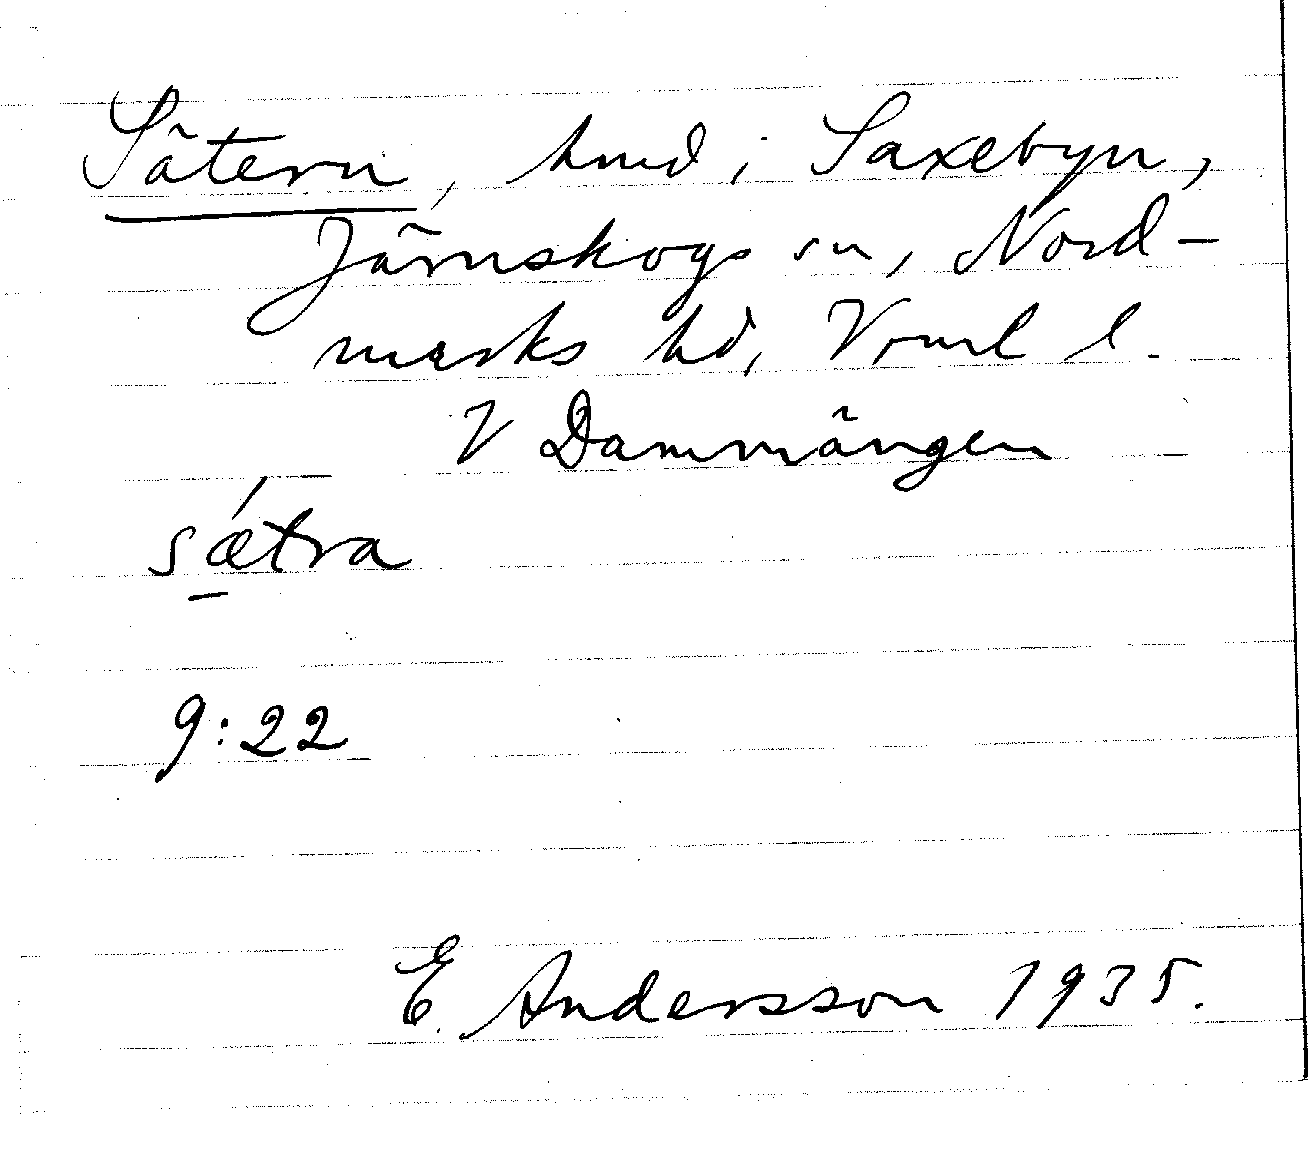 Sätern, hmd i Saxebyn,
Järnskogs sn, Nord-
marks hd, Vrml l.
V Dammängen
sǽtra
9:22
E. Andersson 1935.